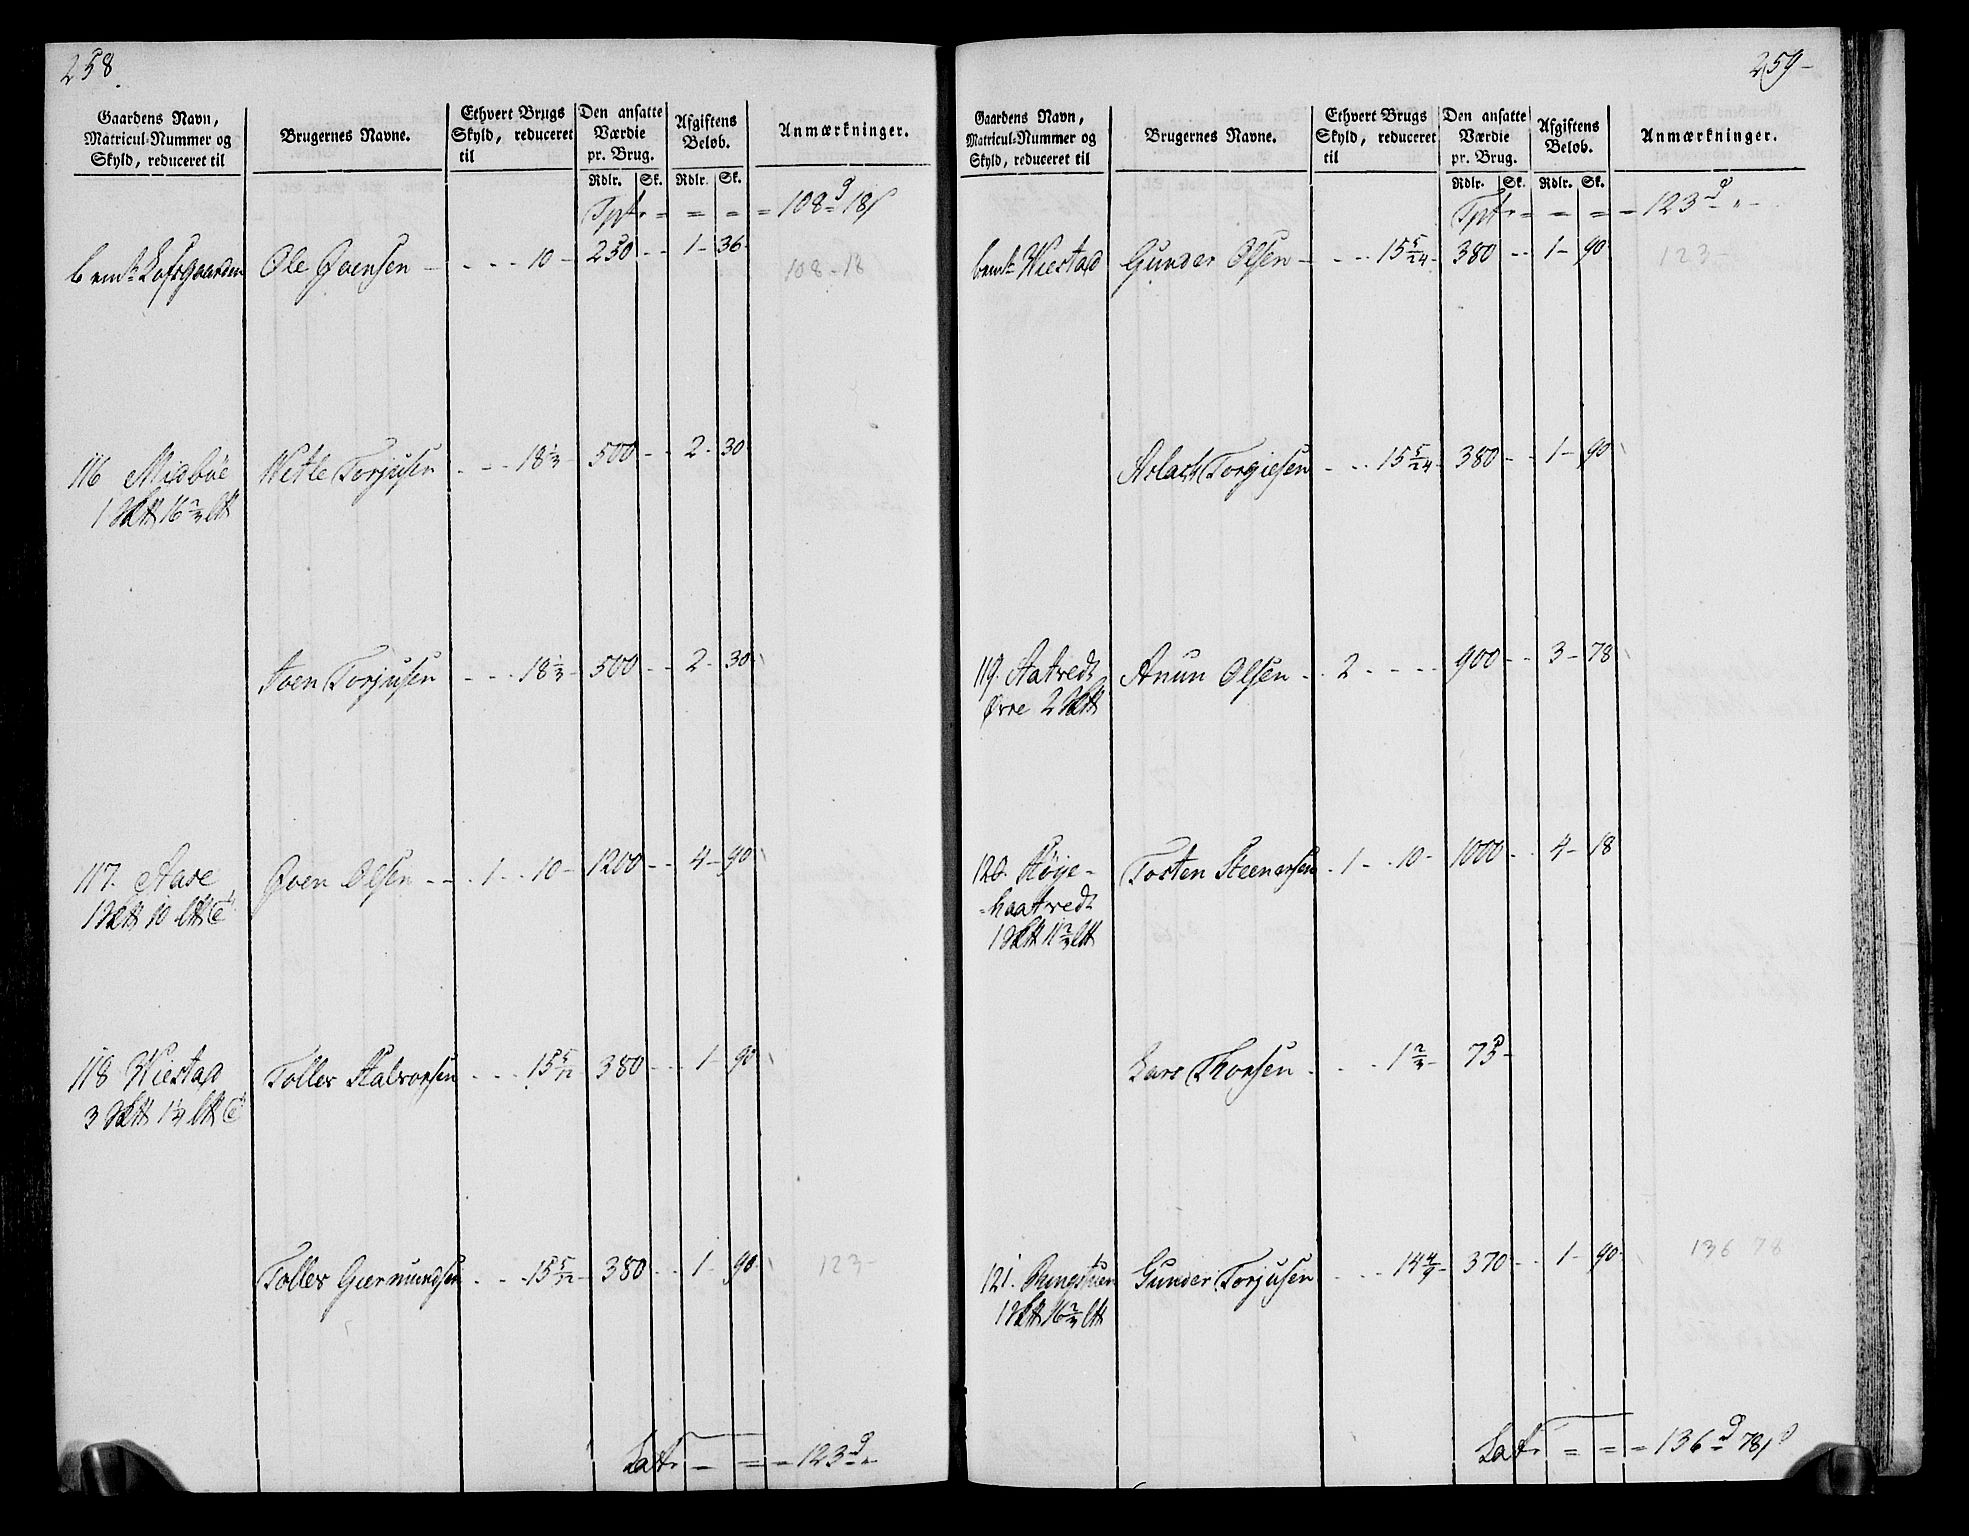 258.
Gaardens Navn, Matricul-Nummer og Skyld, reduceret til | Brugernes Navne. | Ethvert Brugs Skyld, reduceret til | Den ansatte Værdie pr. Brug. | Afgiftens Beløb. | Anmærkninger.
Rdlr. | Sk. | Rdlr. | Sk.
Tpt = = = = 108 18
bemte Lofsgaarden | Ole Øvensen | - - - 10 - | 250 - - | 1 - 36 | 108 - 18
116 Midbøe | Wetle Torjusen | - - - 18 1/3 - | 500 - - | 2 - 30
1 16 2/3
Sven Torjusen | - - - 18 1/3 - | 500 - - | 2 - 30
117. Aase | Øven Olsen - - | 1 - - 10 - | 1200 - - | 4 - 90
1 10
118 Wiestad | Tolles Halvorsen | - - - 15 5/12 | 380 - - | 1 - 90
3 1 1/4
Tolles Giermundsen | - - - 15 5/12 - | 380 - - | 1 - 90 | 123 -
Lat = = = 123
259 -
Gaardens Navn, Matricul-Nummer og Skyld, reduceret til | Brugernes Navne. | Ethvert Brugs Skyld, reduceret til | Den ansatte Værdie pr. Brug. | Afgiftens Beløb. | Anmærkninger.
Rdlr. | Sk. | Rdlr. | Sk.
Tpt = = = = 123 " -
bemte Wiestad | Gunder Olsen - | - - - 15 5/24 - | 380 - - | 1 - 90 | 123 -
Aslach Torgiesen | - - - 15 5/24 - | 380 - - | 1 - 90
119. Aatvedt | Anun Olsen - | 2 - - - - | 900 - - | 3 - 78
Øvre 2
120. Høye- | Tosten Steenersen | 1 - - 10 - | 1000 - - | 4 - 18
-haatvedt
1 11 2/3
Lars Thorsen | - - - 1 2/3 - | 75 -
121. Ringstuen | Gunder Torjusen | - - - 14 4/9 - | 370 - - | 1 - 90 | 136 78
1 16 2/3
Lat = = = 136 78